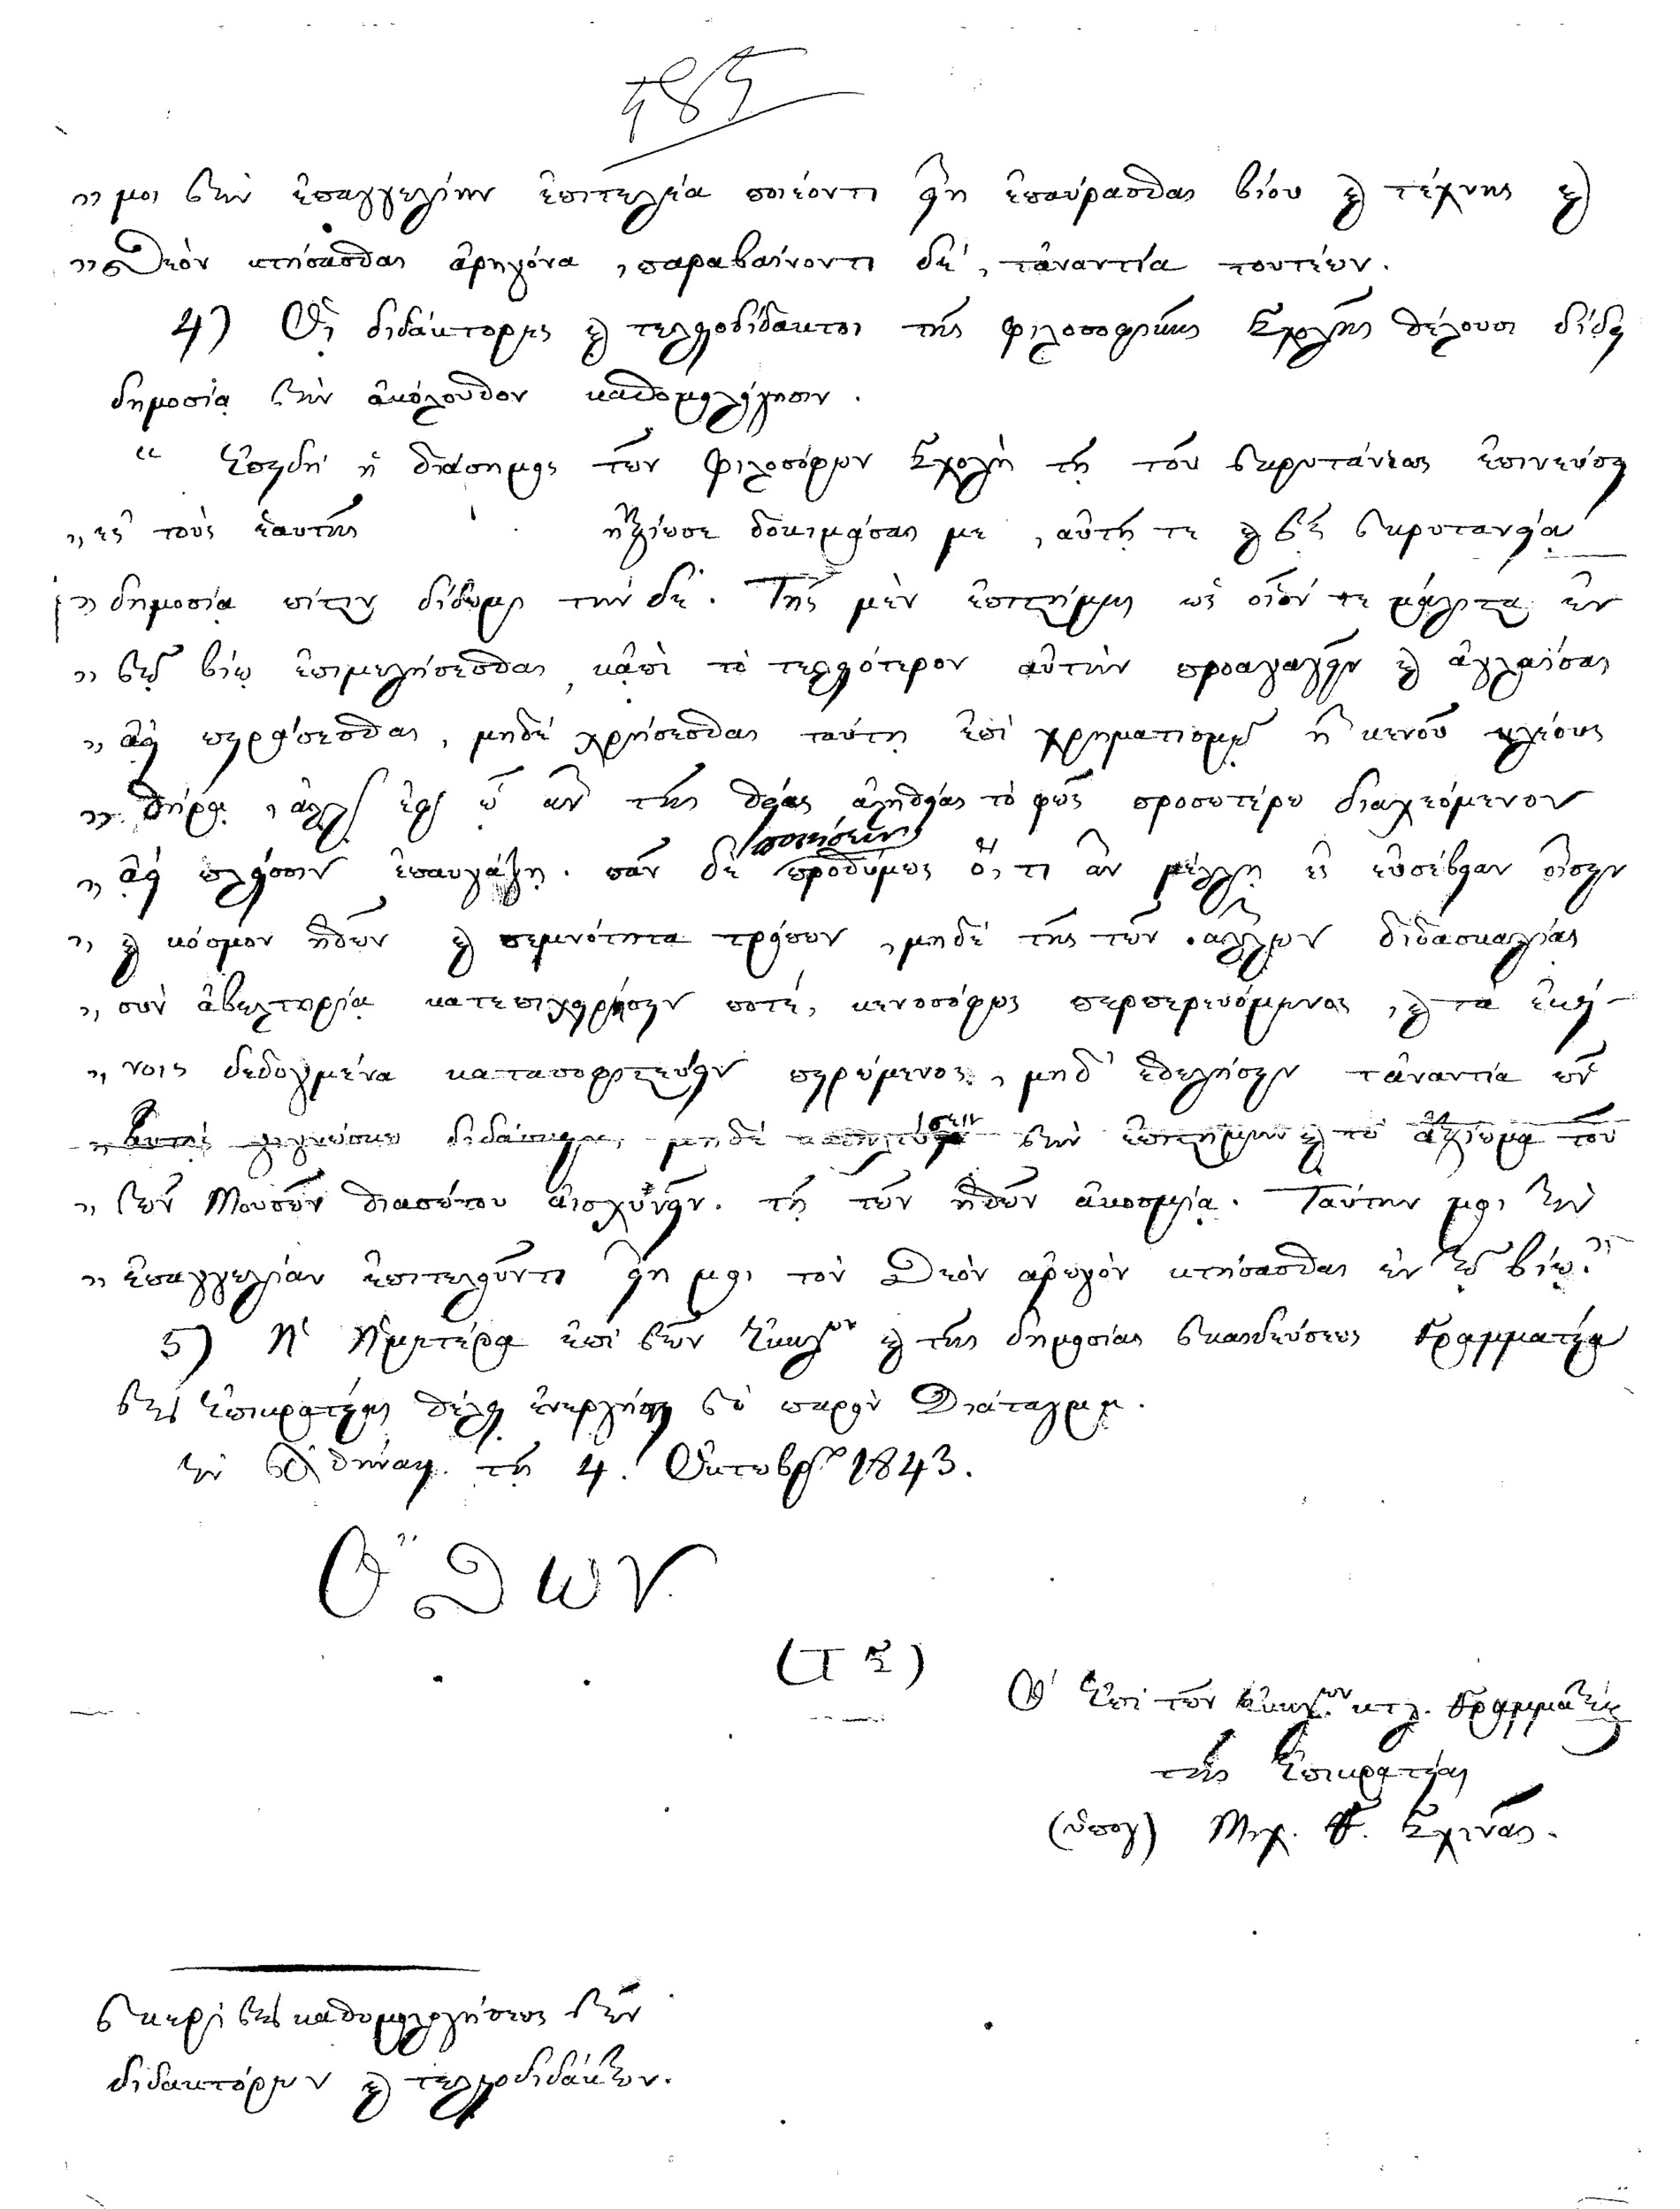 485
„ μοι τὴν ἐπαγγελίην ἐπιτελέα ποιέοντι εἴη ἐπαύρασθαι βίου καὶ τέχνης καὶ
„ Θεὸν κτήσασθαι ἀρηγόνα, παραβαίνοντι δέ, τἀναντία τουτέων.
4) Οἱ διδάκτορες καὶ τελειοδίδακτοι τῆς φιλοσοφικῆς Σχολῆς θέλουσι δίδει
δημοσίᾳ τὴν ἀκόλουθον καθομολόγησιν.
“ Ἐπειδὴ ἡ διάσημος τῶν Φιλοσόφων Σχολὴ τῇ τοῦ πρυτάνεως ἐπινεύσει
„ εἰς τοὺς ἑαυτῆς ἠξίωσε δοκιμάσαι με, αὐτῇ τε καὶ τῇ πρυτανείᾳ
„ δημοσίᾳ πίστιν δίδωμι τήνδε. Τῆς μὲν ἐπιστήμης ὡς οἷόν τε μάλιστα ἐν
„ τῷ βίῳ ἐπιμελήσεσθαι, κἀπὶ τὸ τελειότερον αὐτὴν προαγαγεῖν καὶ ἀγλαΐσαι
„ ἀεὶ πειράσεσθαι, μηδὲ χρήσεσθαι ταύτῃ ἐπὶ χρηματισμῷ ἢ κενοῦ κλέους
„ θήρᾳ, ἀλλ' ἐφ' ᾧ ἂν τῆς θείας ἀληθείας τὸ φῶς προσωτέρω διαχεόμενον
„ ἀεὶ πλείοσιν ἐπαυγάζῃ. πᾶν δὲ ποιήσειν προθύμως ὅ,τι ἂν μέλλῃ ἐς εὐσέβειαν οἴσειν
„ καὶ κόσμον ἠθῶν καὶ σεμνότητα τρόπων, μηδὲ τῆς τῶν ἄλλων διδασκαλίας
„ σὺν ἀβελτηρίᾳ κατεπιχειρήσειν ποτέ, κενοσόφως περπερευόμενος, καὶ τὰ ἐκεί-
„ νοις δεδογμένα κατασοφιστεύειν πειρώμενος, μηδ' ἐθελήσειν τἀναντία ὧν
„ αὐτὸς γιγνώσκω διδάσκειν, μηδὲ τὴν ἐπιστήμην καὶ τὸ ἀξίωμα τοῦ
„ τῶν Μουσῶν θιασώτου αἰσχυνεῖν τῇ τῶν ἠθῶν ἀκοσμίᾳ. Ταύτην μοι τὴν
„ ἐπαγγελίαν ἐπιτελοῦντι εἴη μοι τὸν Θεὸν ἀρωγὸν κτήσασθαι ἐν τῷ βίῳ.”
5) Ἡ Ἡμετέρα ἐπὶ τῶν Ἐκκλ.ων καὶ τῆς δημοσίας παιδεύσεως Γραμματεία
τῆς Ἐπικρατείας θέλει ἐνεργήσει τὸ παρὸν Διάταγμα.
Ἐν Ἀθήναις τῇ 4. Ὀκτωβρίου 1843.
ὌΘΩΝ.
(Τ Σ)
Ὁ Ἐπὶ τῶν Ἐκκλ.ων κτλ. Γραμματεὺς
τῆς Ἐπικρατείας
(ὑπογ) Μιχ. Γ. Σχινᾶς.
περὶ τῆς καθομολογήσεως τῶν
διδακτόρων καὶ τελειοδιδάκτων.